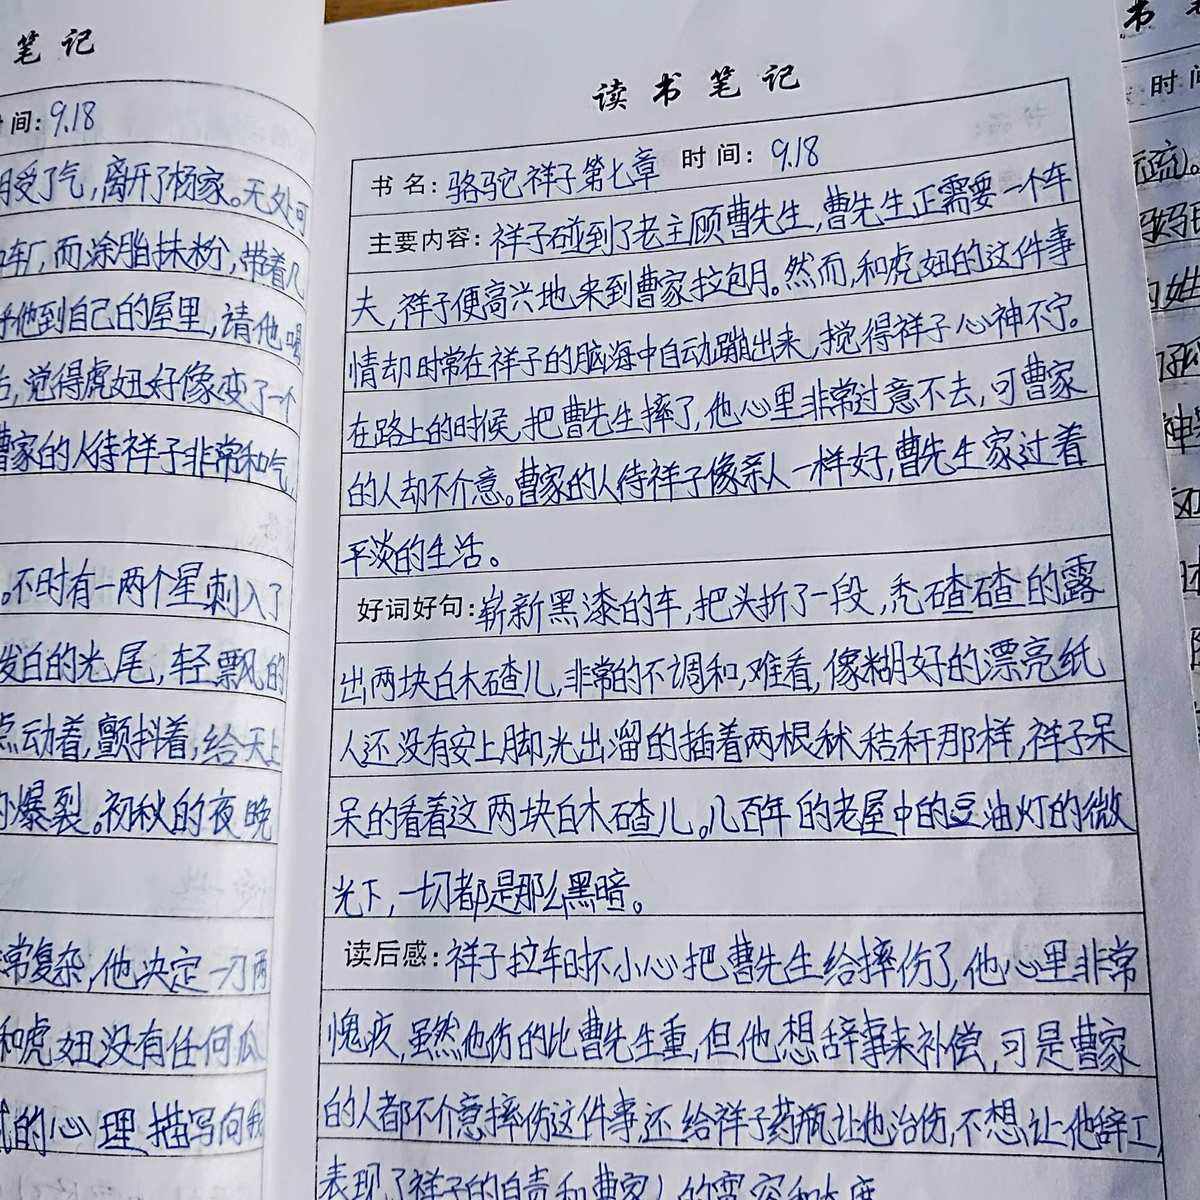 笔记
间：9.18
受了气，离开了杨家。无处可
车厂，而涂脂抹粉，带着几
他到自己的屋里，请他喝
，觉得虎妞好像变了一个
曹家的人待祥子非常和气，
。不时有一两个星刺入了
发白的光尾，轻飘的
点动着，颤抖着，给天上
的爆裂。初秋的夜晚
常复杂，他决定一刀两
和虎妞没有任何瓜
的心理描写向我
读书笔记
书名：骆驼祥子第七章 时间：9.18
主要内容：祥子碰到了老主顾曹先生，曹先生正需要一个车
夫，祥子便高兴地来到曹家拉包月。然而，和虎妞的这件事
情却时常在祥子的脑海中自动蹦出来，搅得祥子心神不宁。
在路上的时候，把曹先生摔了，他心里非常过意不去，可曹家
的人却不介意。曹家的人待祥子像亲人一样好，曹先生家过着
平淡的生活。
好词好句：崭新黑漆的车，把头折了一段，秃碴碴的露
出两块白木碴儿，非常的不调和，难看，像糊好的漂亮纸
人还没有安上脚，光出溜的插着两根秫秸秆那样，祥子呆
呆的看着这两块白木碴儿。几百年的老屋中的豆油灯的微
光下，一切都是那么黑暗。
读后感：祥子拉车时不小心把曹先生给摔伤了，他心里非常
愧疚，虽然他伤的比曹先生重，但他想辞事来补偿，可是曹家
的人都不介意摔伤这件事，还给祥子药瓶让他治伤，不想让他辞工，
表现了祥子的自责和曹家人的宽容和大度
书
时间
流。